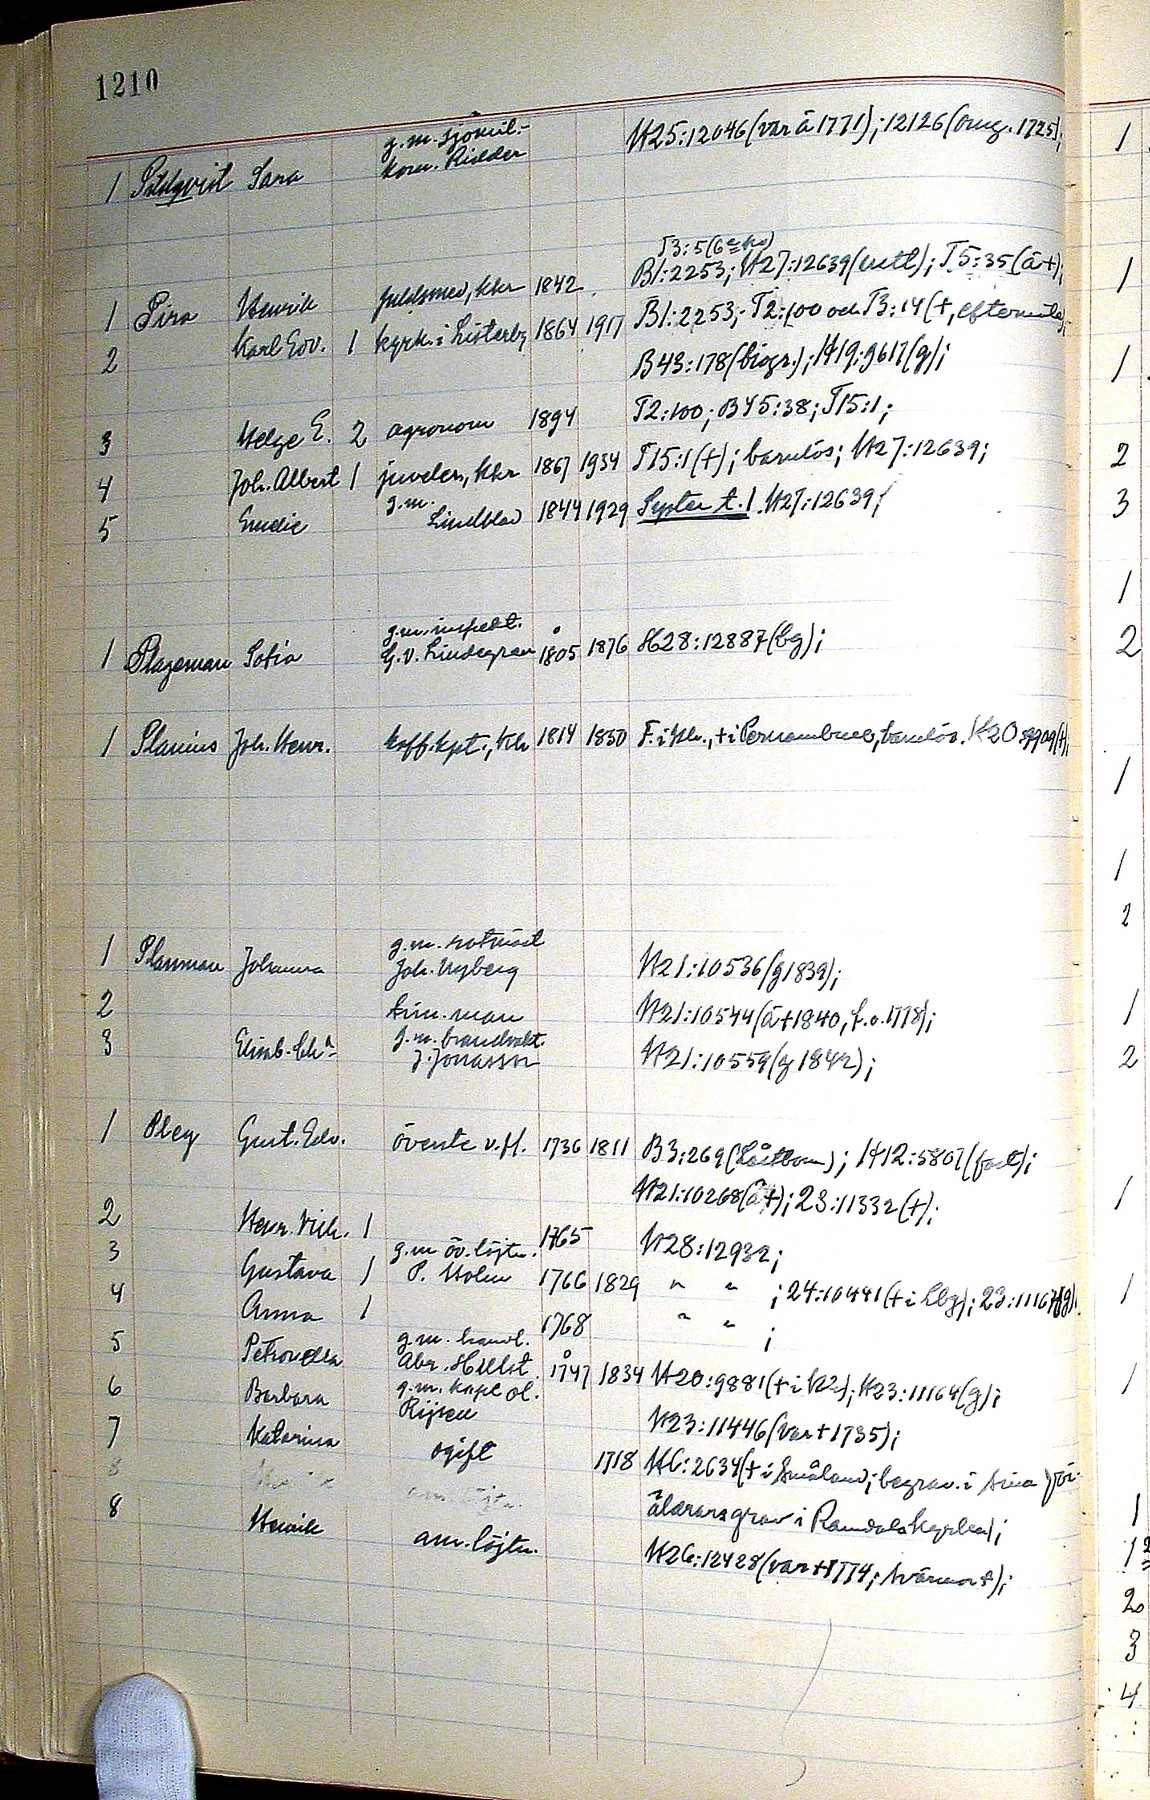 1210
g.m. sjömil.-
1 Pihlqvist Sara kom. Ridder H25:12046(var å 1771);:12126(omg. 1725);
T3:5(6e ko)
1 Pira Henrik guldsmed, Khr 1842 B1:2253; H27:12639(eutl); T5:35(å+);
2 Karl Edv. 1 kyrkh. i Listerby 1864 1917 B1:2253; T2:100 och T3:14(+, eftermäle);
B43:178(biogr.); H19:9617(g);
3 Helge E. 2 agronom 1894 T2:100; B45:38; T15:1;
4 Joh. Albert 1 juveler, Khr 1867 1934 T15:1(+); barnlös; H27:12639;
g.m.
5 Emelie Lindblad 1844 1929 Syster t. 1. H27:12639;
g.m. inspekt.
1 Plageman Sofia G.V. Lindegren 1805 1876 H28:12887(bg);
1 Planius Joh. Henr. koff.kpt., Khr 1814 1850 F. i Khr., + i Pernambuco, barnlös. H20:9909(+);
g.m. rotmäst
1 Planman Johanna Joh. Nyberg H21:10536(g 1839);
2 tim.man H21:10544(å+1840, f.o. 1778);
g.m. brandvakt
3 Elisab. Cha J. Jonasson H21:10559(g 1842);
1 Pley Gust. Edv. överste v. fl. 1736 1811 B3:269(Låstbom); H12:5807(fast);
H21:10268(å+); 23:11332(+);
2 Henr. Vilh. 1 1765 H28:12932;
g.m. öv.löjtn.
3 Gustava 1 P. Holm 1766 1829 " " ; 24:10441(+ i Lbg); 23:11167(g);
4 Anna 1 1768 " " ;
g.m. handl.
5 Petronella Abr. Hillst. 1747 1834 H20:9881(+ i K2); H23:11164(g);
g.m. kapt. ol.
6 Barbara Rijsen H23:11446(var + 1735);
7 Katarina ogift 1718 H6:2634(+ i Småland; begrav. i sina för-
äldrars grav i Ramdala kyrka);
8 Henrik am. löjtn. H26:12428(var + 1774; svärmor +);
1
1
1
2
3
1
2
1
1
2
1
2
1
1
1
1
1
2
3
4